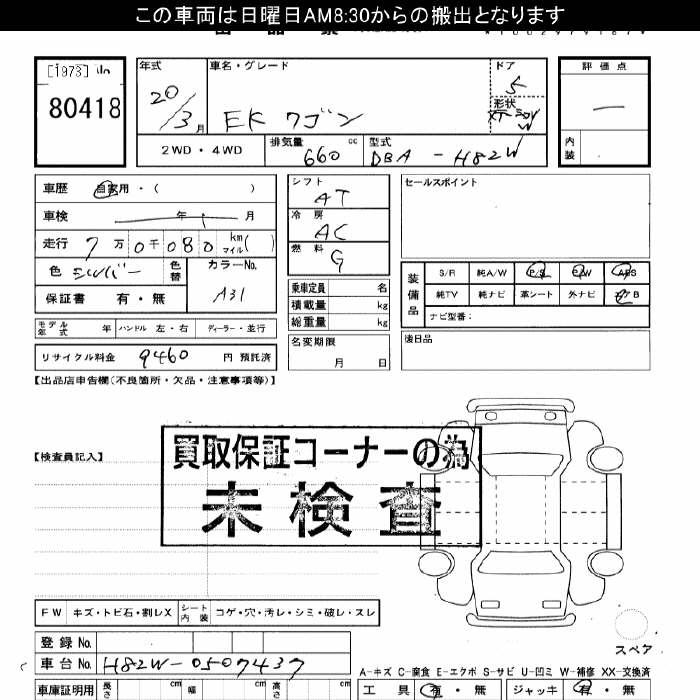 この車両は日曜日AM8:30からの搬出となります
[1973]
80418
年式
20/3月
車名・グレード
EK ワゴン
ドア
5
形状
評価点
内装
2WD・4WD
排気量
660 cc
型式
DBA-H82W
車歴 自家用・( )
車検 年 月
走行 7万0千080 km マイル( )
色 シルバー
色替
カラーNo.
A31
保証書 有・無
モデル年式 年 ハンドル 左・右 ディーラー・並行
リサイクル料金 9460 円 預託済
シフト
AT
冷房
AC
燃料
G
乗車定員 名
積載量 kg
総重量 kg
名変期限
月 日
セールスポイント
装備品
S/R 純A/W P/S P/W ABS
純TV 純ナビ 革シート 外ナビ エアB
ナビ型番:
後日品
【出品店申告欄(不良箇所・欠品・注意事項等)】
【検査員記入】
買取保証コーナーの為
未検査
FW キズ・トビ石・割レX シート内装 コゲ・穴・汚レ・シミ・破レ・スレ
登録 No.
車台 No. H82W-0507437
スペア
A-キズ C-腐食 E-エクボ S-サビ U-凹ミ W-補修 XX-交換済
車庫証明用 長さ cm 幅 cm 高さ cm
工具 有・無 ジャッキ 有・無